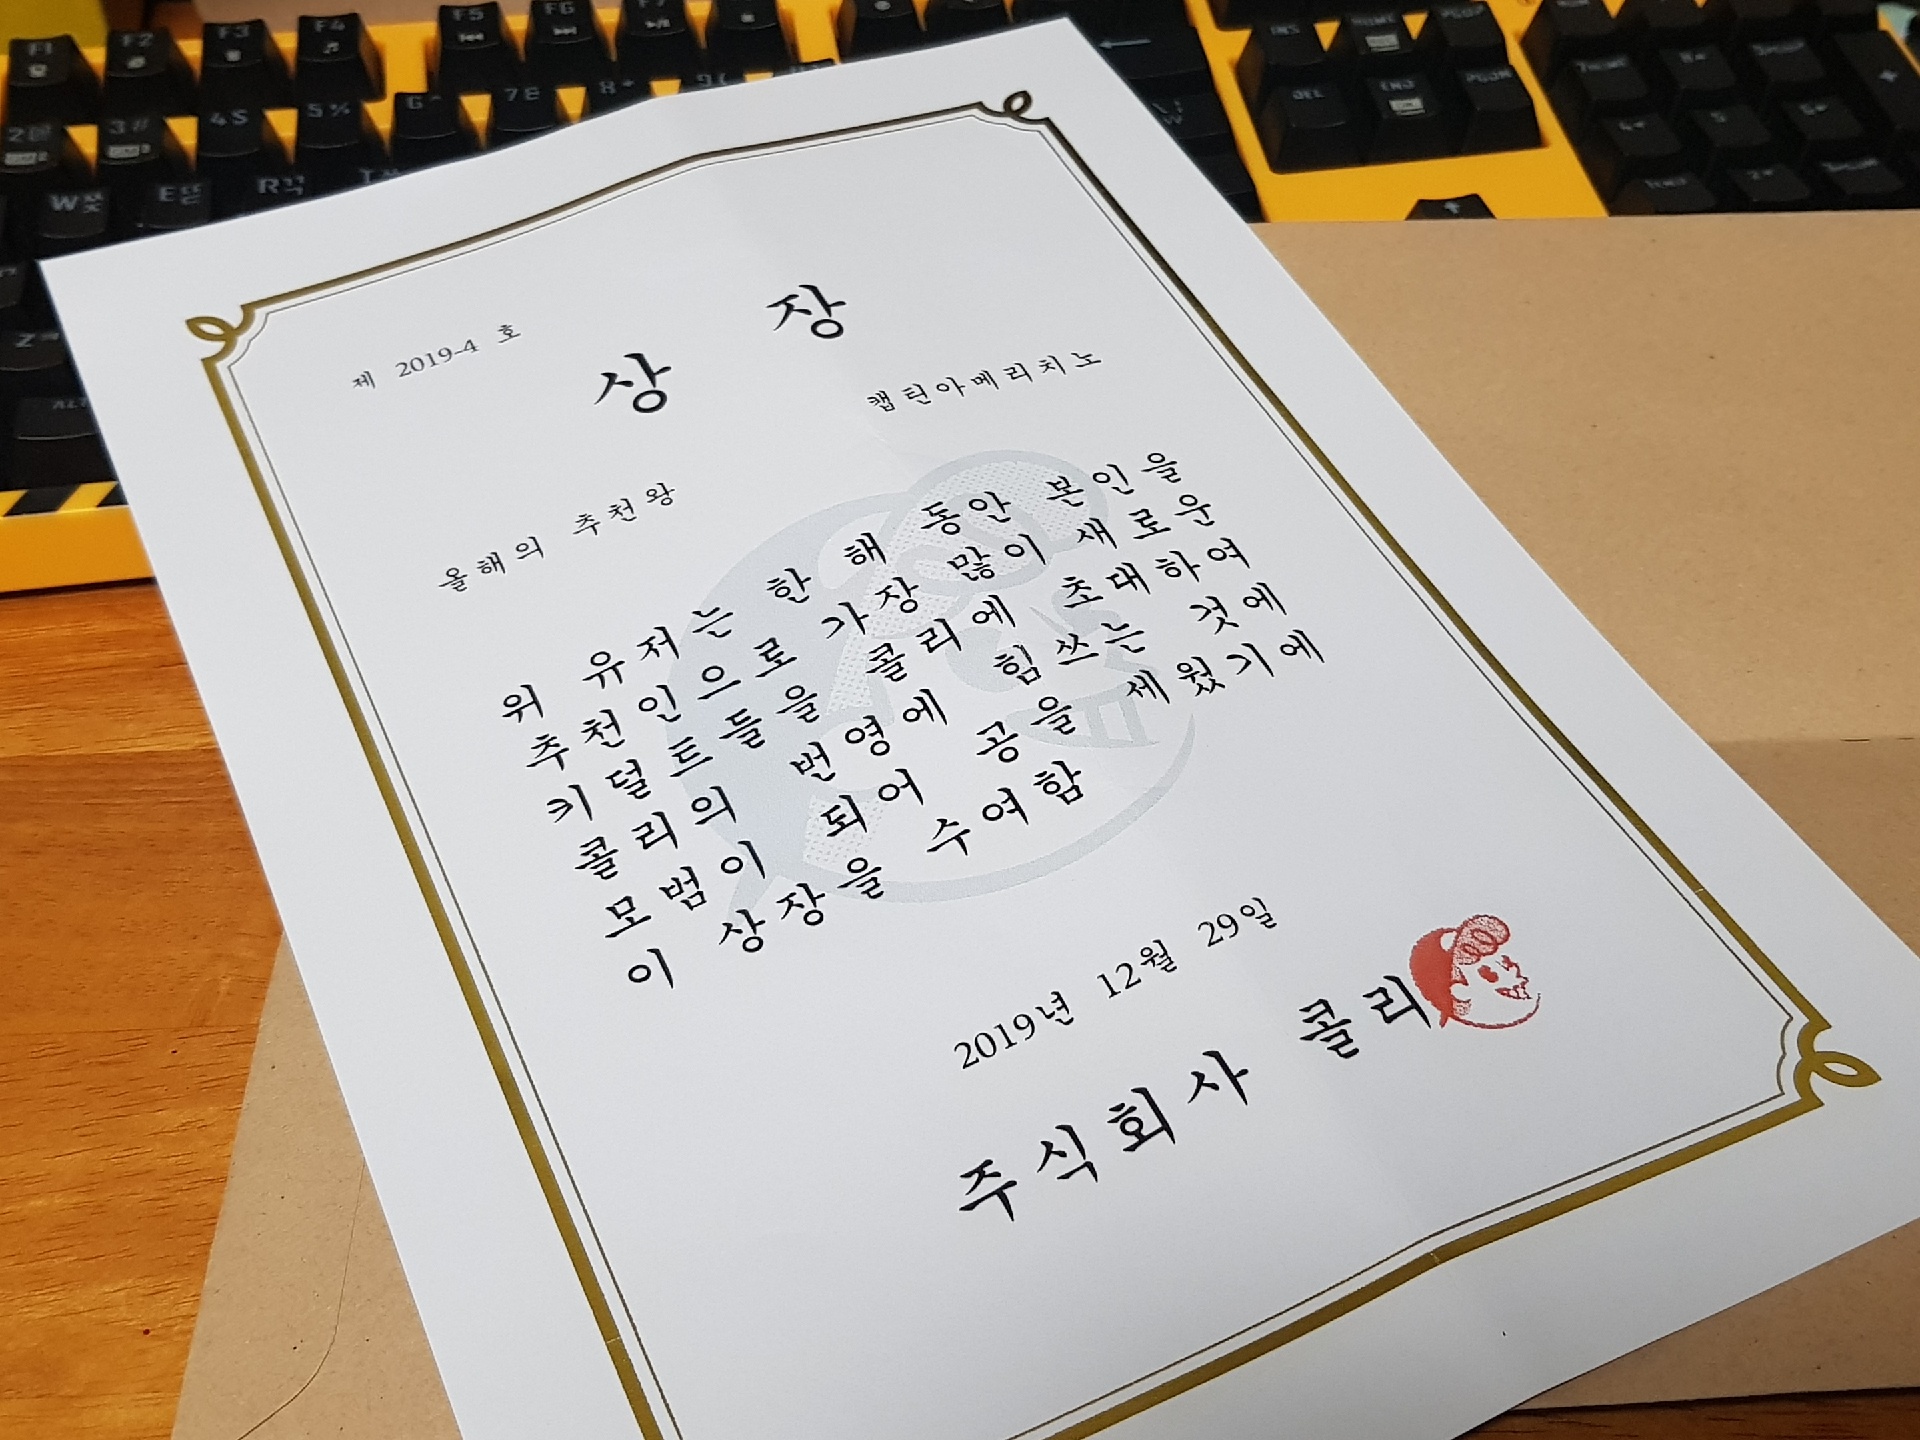 F1
F2
F3
F4
F5
F6
F7
INS
HOME
PGUP
2@
3#
4$
5%
6^
7&
8*
9(
DEL
END
PGDN
W
E
R
Z
ALT
제 2019-4 호
상 장
캡틴아메리치노
올해의 추천왕
위 유저는 한 해 동안 본인을
추천인으로 가장 많이 새로운
키덜트들을 콜리에 초대하여
콜리의 번영에 힘쓰는 것에
모범이 되어 공을 세웠기에
이 상장을 수여함
2019년 12월 29일
주식회사 콜리